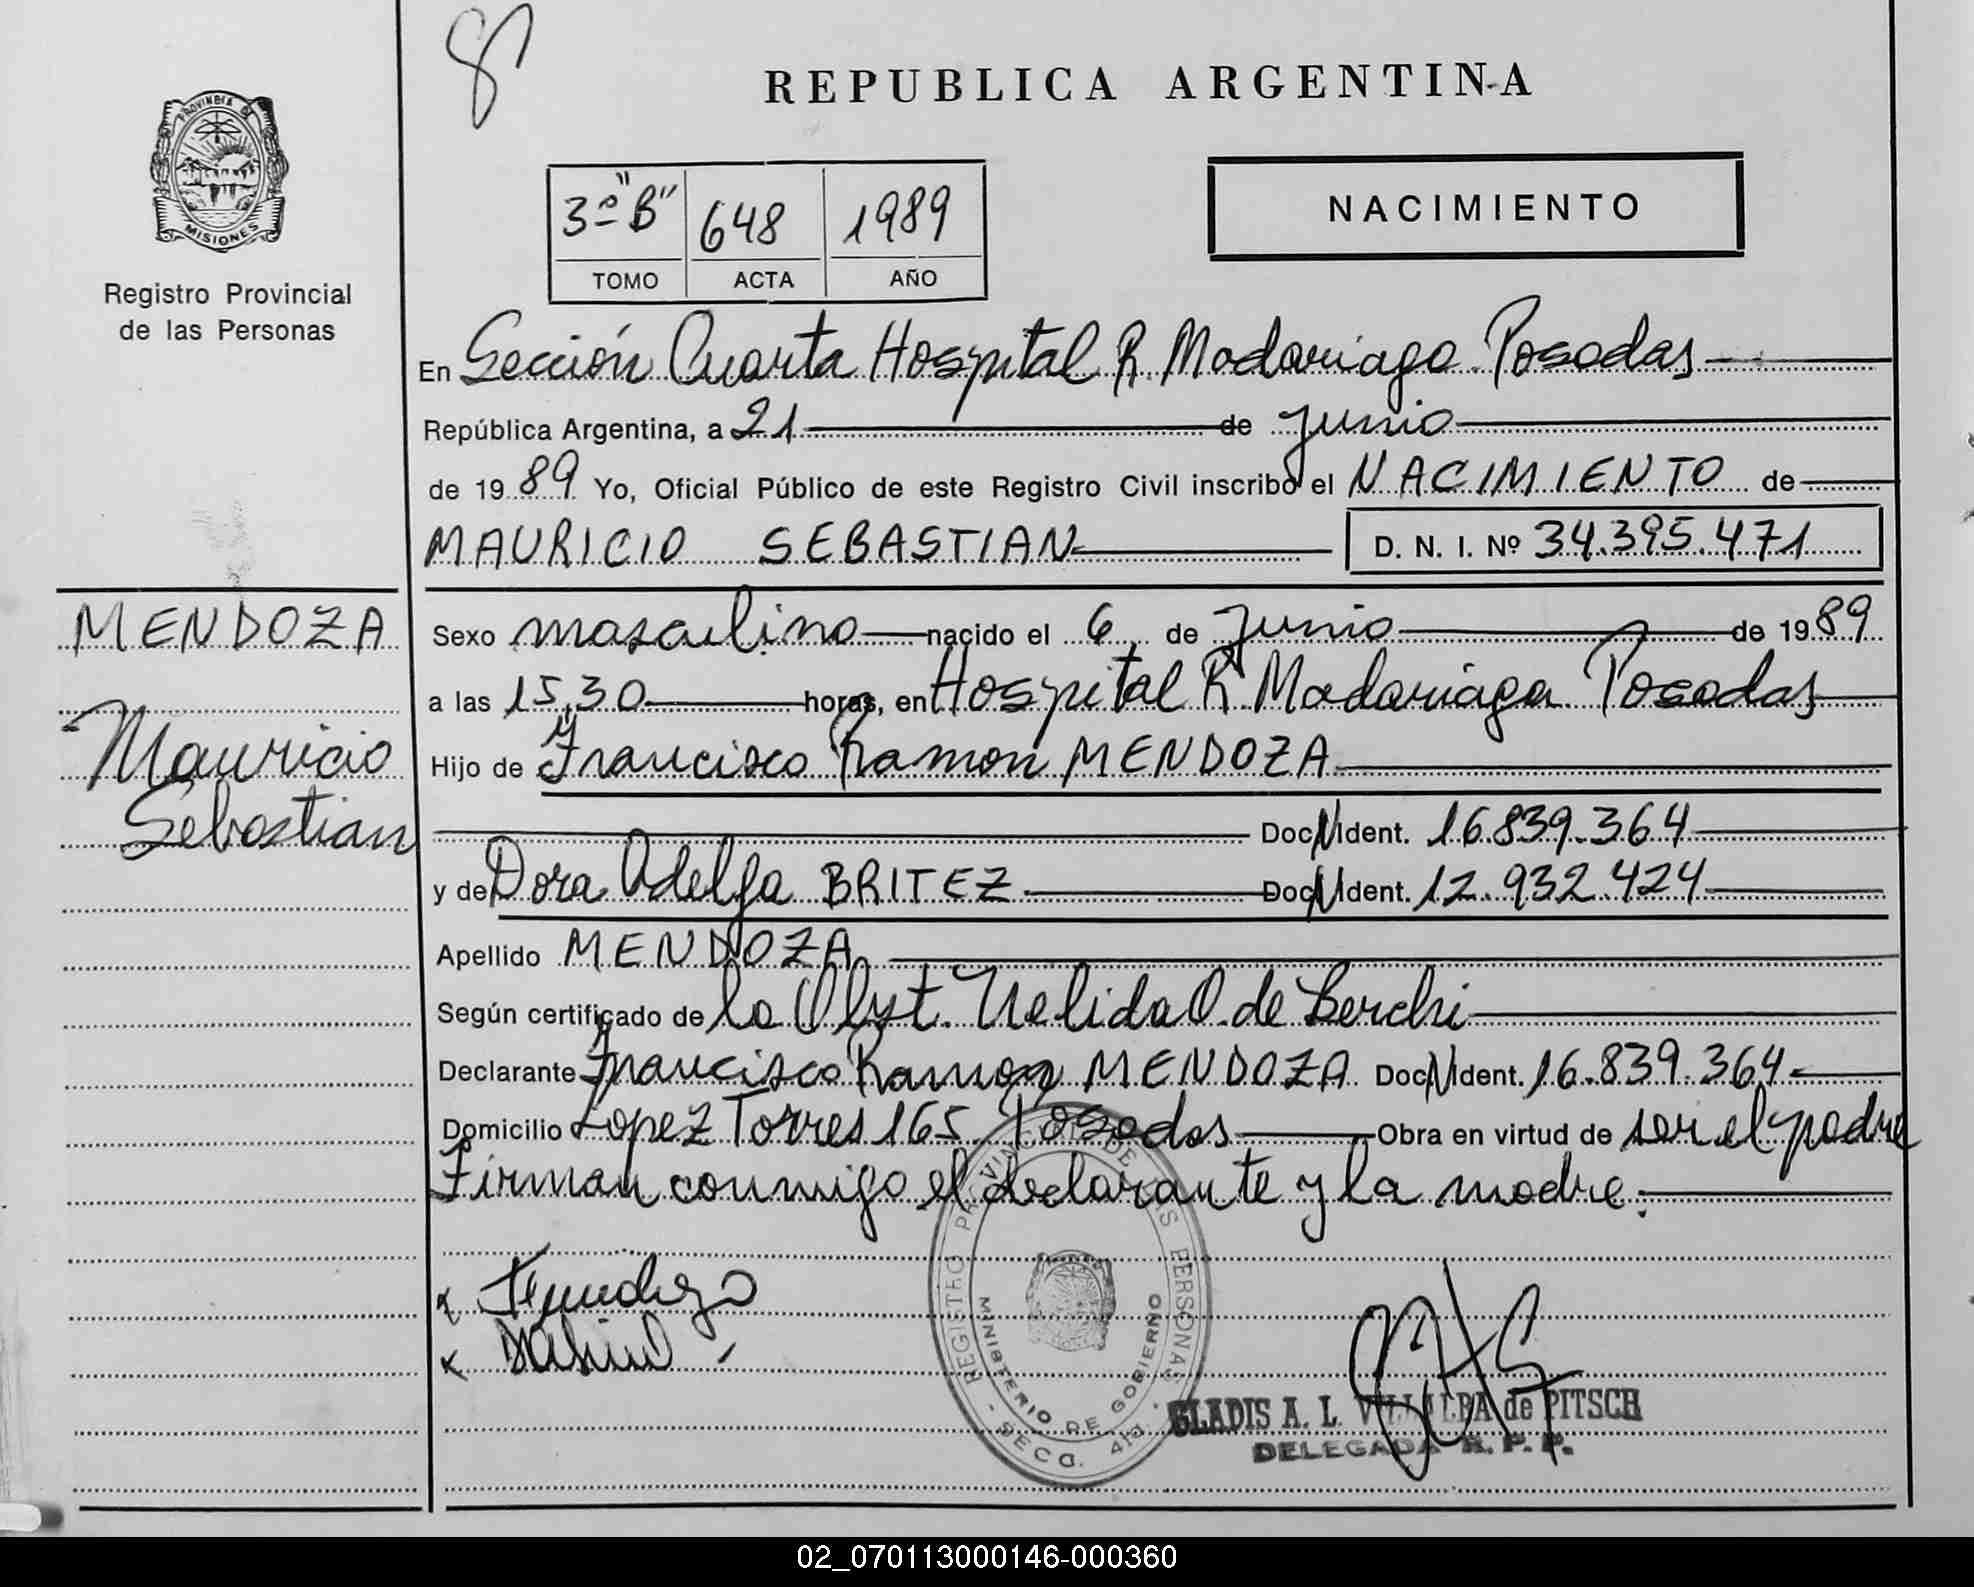 8
REPUBLICA ARGENTINA
PROVINCIA DE
MISIONES
Registro Provincial
de las Personas
3º "B" 648 1989
TOMO ACTA AÑO
NACIMIENTO
En Sección Cuarta Hospital R. Madariaga. Posadas
República Argentina, a 21 de Junio
de 1989 Yo, Oficial Público de este Registro Civil inscribo el NACIMIENTO de
MAURICIO SEBASTIAN D. N. I. Nº 34.395.471
MENDOZA
Mauricio
Sebastian
Sexo masculino nacido el 6 de Junio de 1989
a las 15,30 horas, en Hospital R. Madariaga. Posadas
Hijo de Francisco Ramon MENDOZA
Doc. N Ident. 16.839.364
y de Dora Adelfa BRITEZ Doc. N Ident. 12.932.424
Apellido MENDOZA
Según certificado de la Obst. Nelida O. de Berchi
Declarante Francisco Ramon MENDOZA Doc. N Ident. 16.839.364
Domicilio Lopez Torres 165 Posadas Obra en virtud de ser el padre
Firman conmigo el declarante y la madre.
REGISTRO PROVINCIAL DE LAS PERSONAS
MINISTERIO DE GOBIERNO
- SECC. 4ta. -
GLADIS A. L. VILLALBA de PITSCH
DELEGADA R. P. P.
02_070113000146-000360